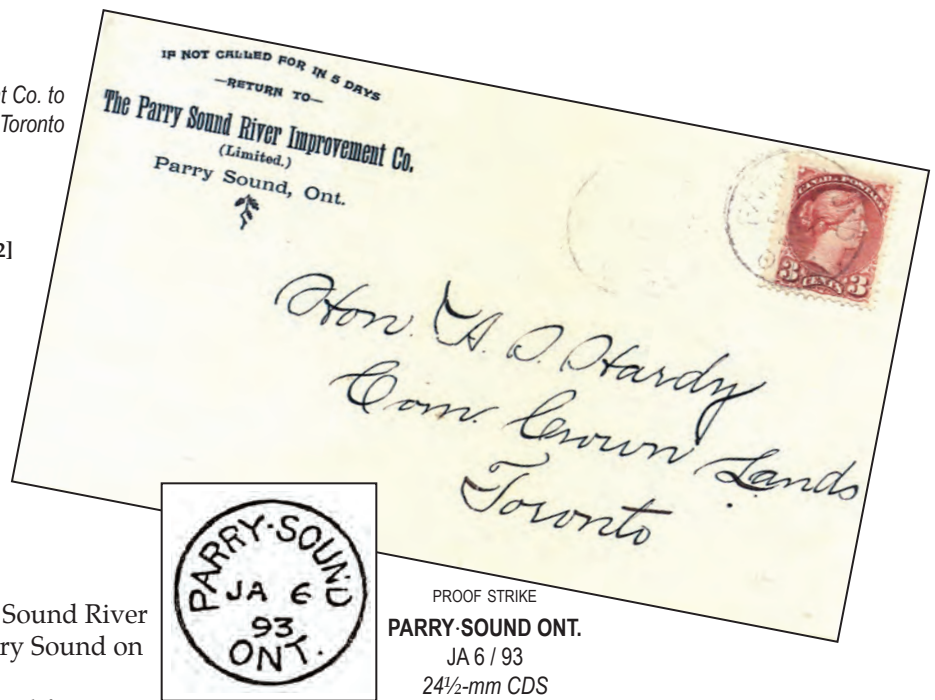 t Co. to
Toronto
2]
IF NOT CALLED FOR IN 5 DAYS
—RETURN TO—
The Parry Sound River Improvement Co.
(Limited.)
Parry Sound, Ont.
CANADA POSTAGE
3 CENTS 3
Hon. A. S. Hardy
Com. Crown Lands
Toronto
PARRY·SOUND
JA 6
93
ONT.
PROOF STRIKE
PARRY·SOUND ONT.
JA 6 / 93
24½-mm CDS
Sound River
ry Sound on